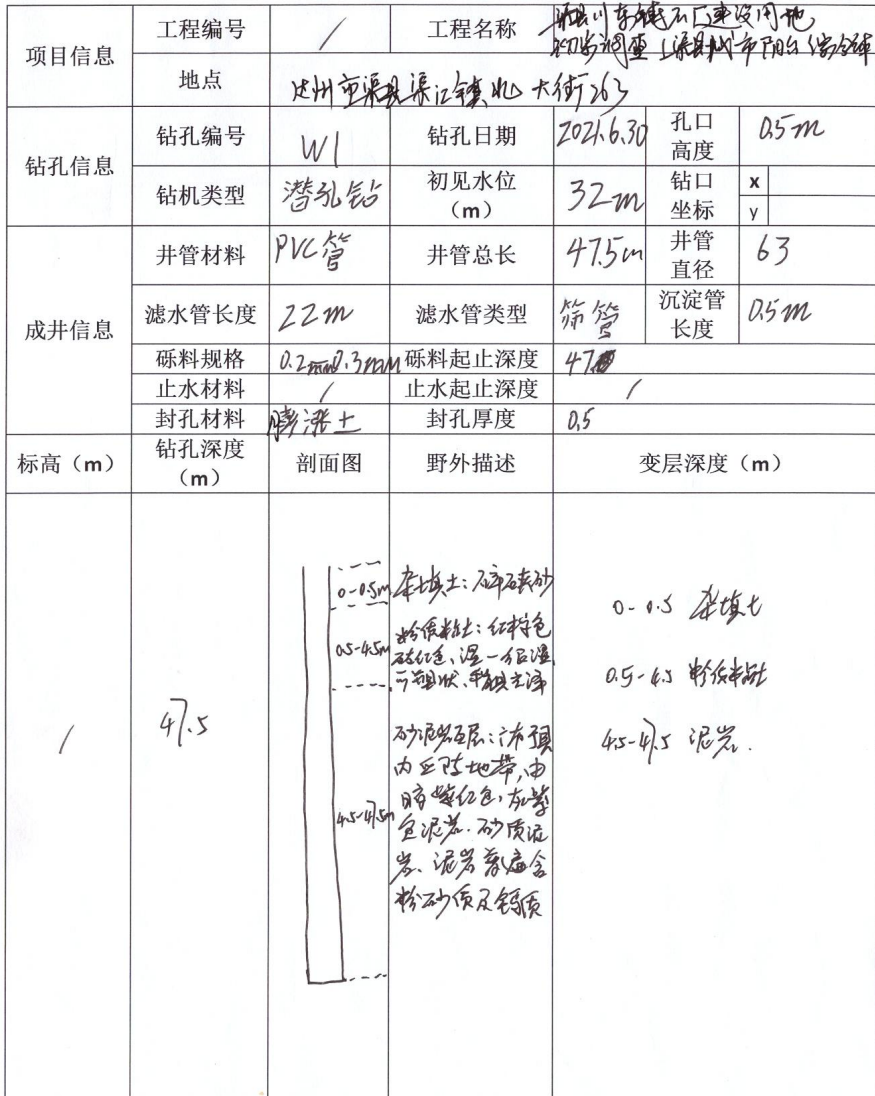 项目信息 工程编号 / 工程名称 渠县川东 厂建设用地
初步调查(渠县城市阳台综合体
地点 达州市渠县渠江镇北大街263
钻孔信息 钻孔编号 W1 钻孔日期 2021.6.30 孔口高度 0.5m
钻机类型 潜孔钻 初见水位(m) 32m 钻口坐标 x
y
成井信息 井管材料 PVC管 井管总长 47.5m 井管直径 63
滤水管长度 22m 滤水管类型 筛管 沉淀管长度 0.5m
砾料规格 0.2mm0.3mm 砾料起止深度 47
止水材料 / 止水起止深度 /
封孔材料 膨涨土 封孔厚度 0.5
标高(m) 钻孔深度(m) 剖面图 野外描述 变层深度(m)
/
47.5
0-0.5m
0.5-4.5m
4.5-47.5m
杂填土:碎石夹砂
粉质粘土:红棕色
砖红色、湿-稍湿
可塑状、
砂泥岩互层:
内丘陵地带,由
暗紫红色、灰紫
色泥岩.砂质泥
岩、泥岩普遍含
粉砂质及钙质
0-0.5 杂填土
0.5-4.5 粉质粘土
4.5-47.5 泥岩.